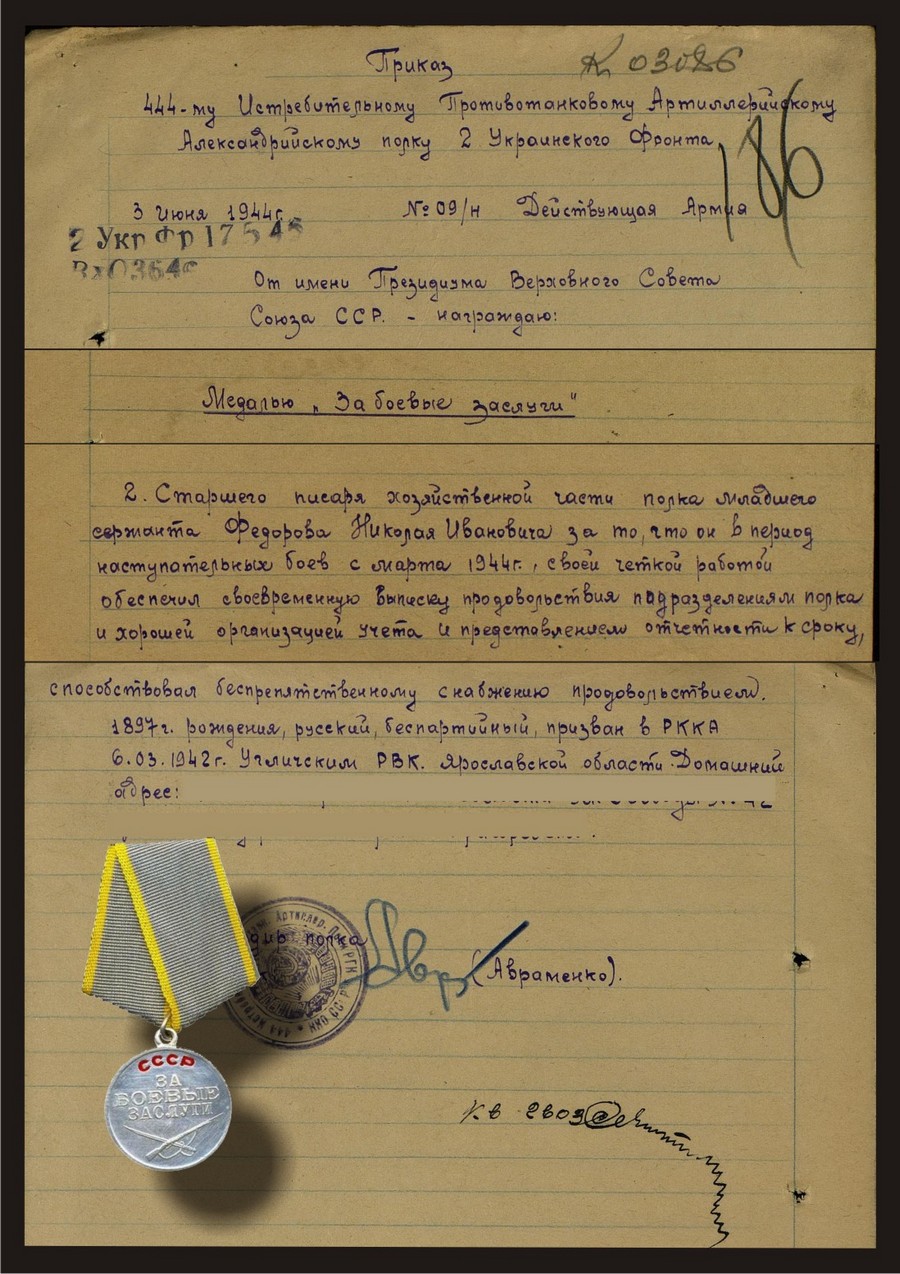 Приказ
К 03026
444-му Истребительному Противотанковому Артиллерийскому
Александрийскому полку 2 Украинского Фронта
186
3 Июня 1944г. № 09/н Действующая Армия
2 Укр Фр 1754
Вх 0364
От имени Президиума Верховного Совета
Союза ССР. - награждаю:
Медалью „За боевые заслуги"
2. Старшего писаря хозяйственной части полка младшего
сержанта Федорова Николая Ивановича за то, что он в период
наступательных боев с марта 1944г., своей четкой работой
обеспечил своевременную выписку продовольствия подразделениям полка
и хорошей организацией учета и представлением отчетности к сроку,
способствовал беспрепятственному снабжению продовольствием.
1897г. рождения, русский, беспартийный, призван в РККА
6.03.1942г. Угличским РВК. Ярославской области. Домашний
адрес:
дир полка (Авраменко).
Артиллер.
НКО СССР
444
СССР
ЗА
БОЕВЫЕ
ЗАСЛУГИ